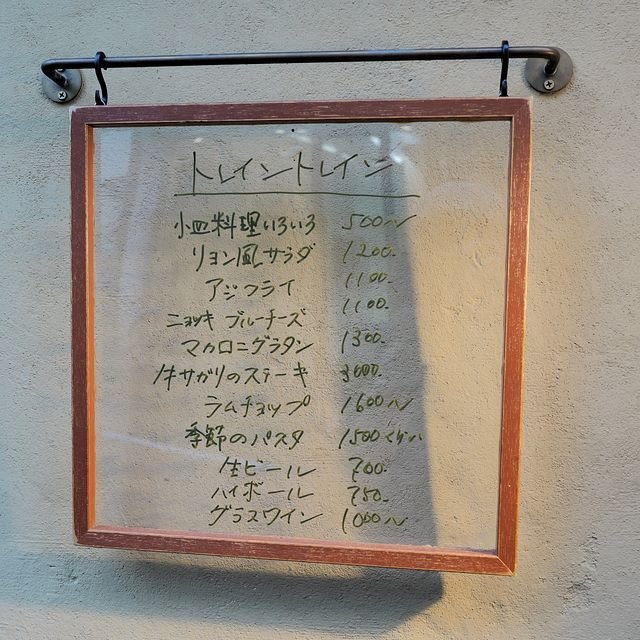 トレイントレイン
小皿料理いろいろ 500〜
リヨン風サラダ 1200.
アジフライ 1100.
ニョッキ ブルーチーズ 1100.
マカロニグラタン 1300.
牛サガリのステーキ 3000.
ラムチョップ 1600〜
季節のパスタ 1500くらい
生ビール 700.
ハイボール 750.
グラスワイン 1000〜